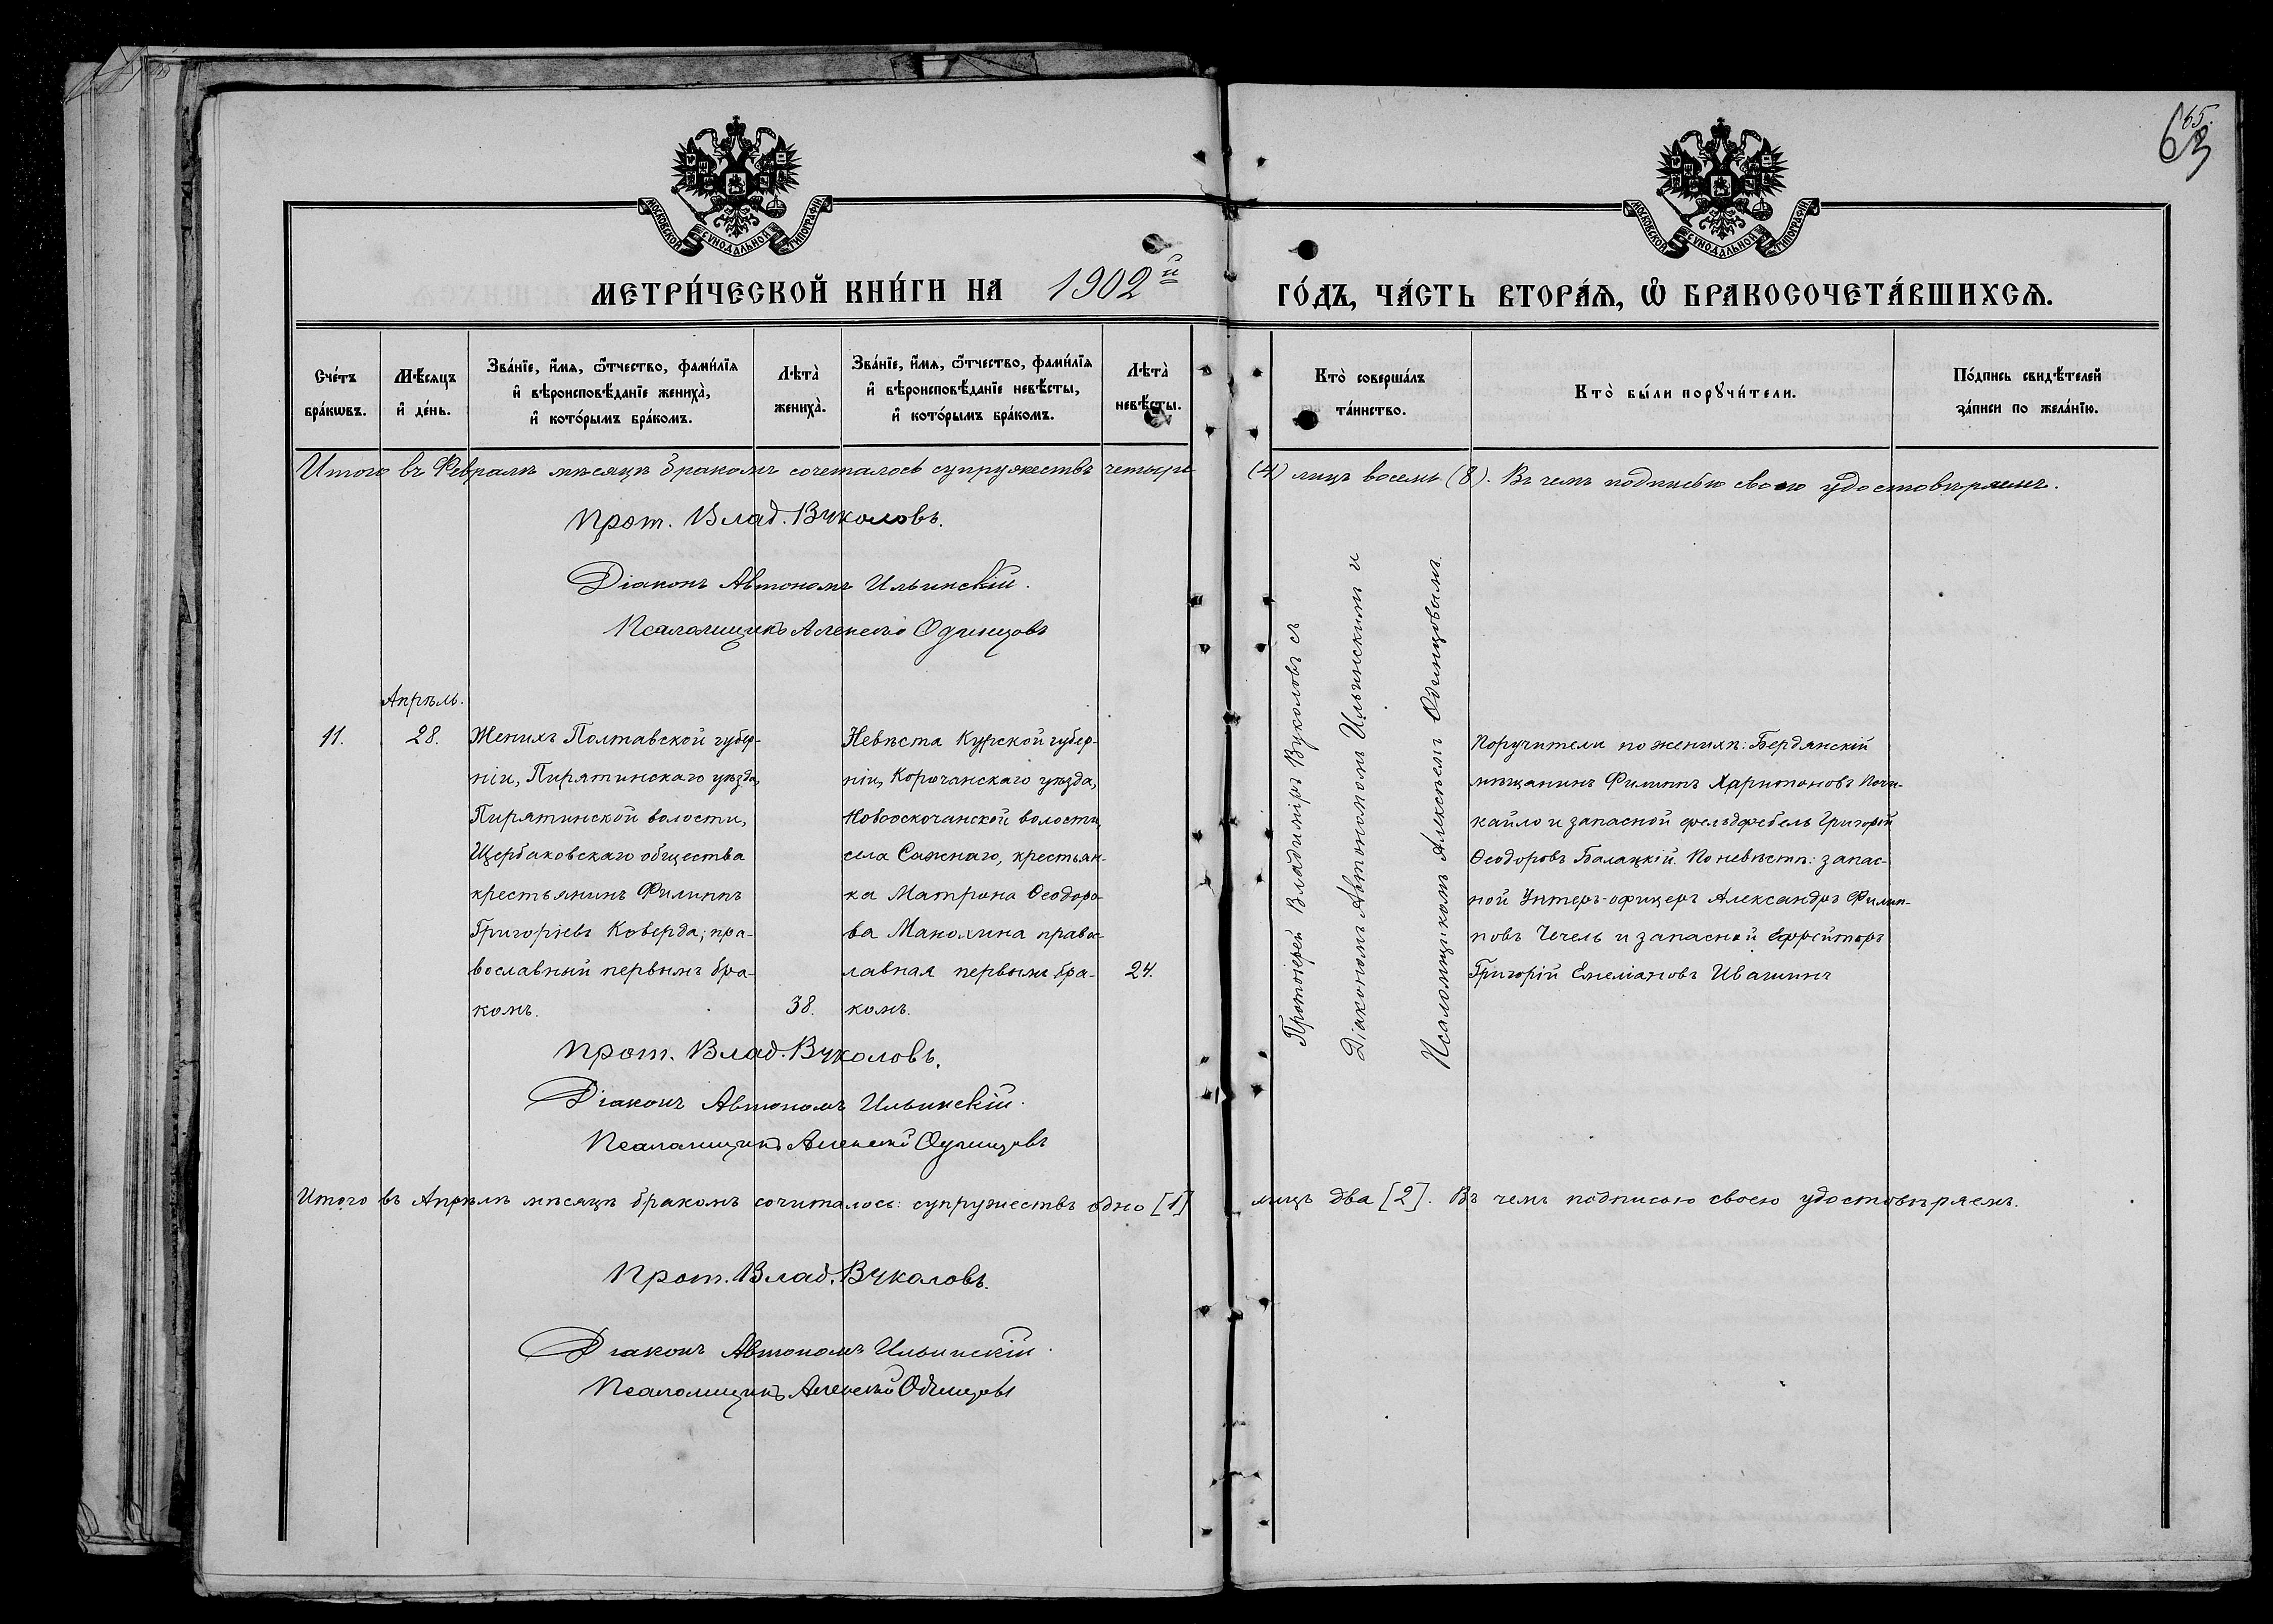 65.
63
МОСКОВСКОЙ СѴНОДАЛЬНОЙ ТИПОГРАФІИ
МОСКОВСКОЙ СѴНОДАЛЬНОЙ ТИПОГРАФІИ
МЕТРИ́ЧЕСКОЙ КНИ́ГИ НА 1902й ГО́ДЪ, ЧА́СТЬ ВТОРА́Ѧ, Ѡ҆ БРАКОСОЧЕТА́ВШИХСѦ.
Сче́тъ
бра́кѡвъ.
Мѣ́сяцъ
и҆ де́нь.
Зва́нїе, и҆́мя, ѻ҆́тчество, фами́лїя
и҆ вѣроисповѣ́данїе жениха̀,
и҆ кото́рымъ бра́комъ.
Лѣта̀
жениха̀.
Зва́нїе, и҆́мя, ѻ҆́тчество, фами́лїя
и҆ вѣроисповѣ́данїе невѣ́сты,
и҆ кото́рымъ бра́комъ.
Лѣта̀
невѣ́сты.
Кто̀ соверша́лъ
та́инство.
Кто̀ бы́ли порꙋчи́тели.
По́дпись свидѣ́телей
за́писи по жела́нїю.
Итого въ Февралѣ мѣсяцѣ бракомъ сочеталось супружествъ четыре (4) лицъ восемь (8). Въ чемъ подписью своею удостовѣряемъ.
Прот. Влад. Вуколовъ.
Діаконъ Автономъ Ильинскій.
Псаломщикъ Алексѣй Одинцовъ
Апрѣль.
11.
28.
Женихъ Полтавской губер-
ніи, Пирятинскаго уѣзда,
Пирятинской волости,
Щербаковскаго общества
крестьянинъ Филиппъ
Григоріевъ Коверда; пра-
вославный первымъ бра-
комъ.
38.
Невѣста Курской губер-
ніи, Корочанскаго уѣзда,
Новооскочанской волости,
села Сажнаго, крестьян-
ка Матрона Ѳеодоро-
ва Манохина правос-
лавная первымъ бра-
комъ.
24.
Протоіерей Владиміръ Вуколовъ съ
Діакономъ Автономомъ Ильинскимъ и
Псаломщикомъ Алексѣемъ Одинцовымъ.
Поручители по женихѣ: Бердянскій
мѣщанинъ Филиппъ Харитоновъ Поч-
кайло и запасной фельдфебель Григорій
Ѳеодоровъ Балацкій. По невѣстѣ: запас-
ной Унтеръ-офицеръ Александръ Филип-
повъ Чечель и запасной Ефрейторъ
Григорій Емеліановъ Ивашинъ
Прот. Влад. Вуколовъ.
Діаконъ Автономъ Ильинскій.
Псаломщикъ Алексѣй Одинцовъ
Итого въ Апрѣлѣ мѣсяцѣ бракомъ сочиталось: супружествъ одно [1] лицъ два [2]. Въ чемъ подписью своею удостовѣряемъ.
Прот. Влад. Вуколовъ.
Діаконъ Автономъ Ильинскій.
Псаломщикъ Алексѣй Одинцовъ